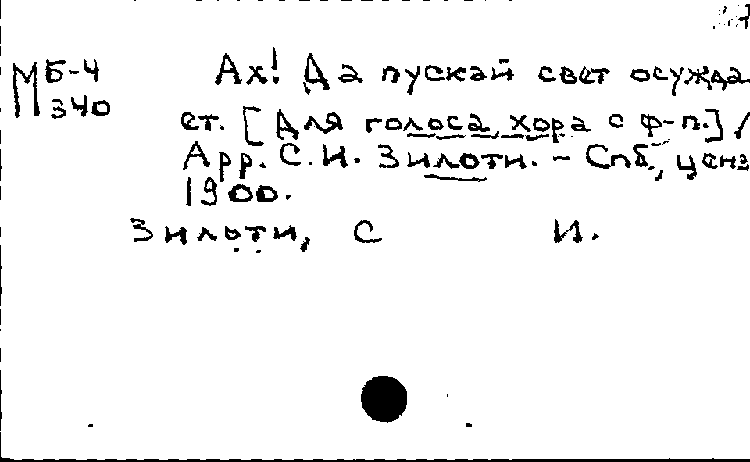 М Б-4
340
Ах! Да пускай свет осужда
ет. [Для голоса, хора с ф-п.] /
Арр. С.И. Зилоти. - Спб., ценз
1900.
Зилоти, С И.